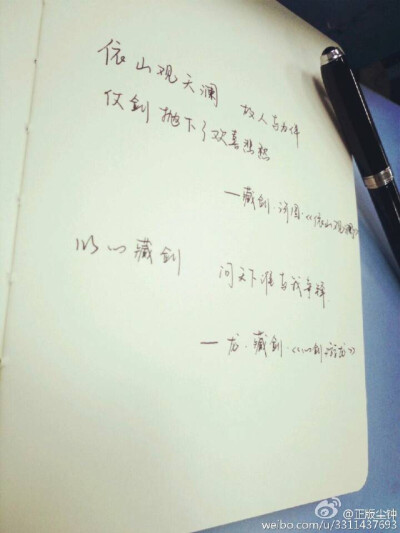 依山观天澜 故人与为伴
仗剑抛下了欢喜悲愁
—藏剑·诗图·《依山观澜》
以心藏剑 问天下谁与我争锋
—龙·藏剑·《心剑游龙》
@正版尘钟
weibo.com/u/3311437693